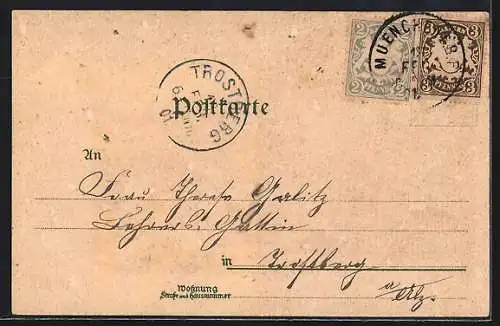 2 2
3 3
MUENCHEN
TROSTBERG
Postkarte
An
Frau Therese Galitz
Lehrers Gattin
in Trostberg
a/Alz.
Wohnung
Straße und Hausnummer